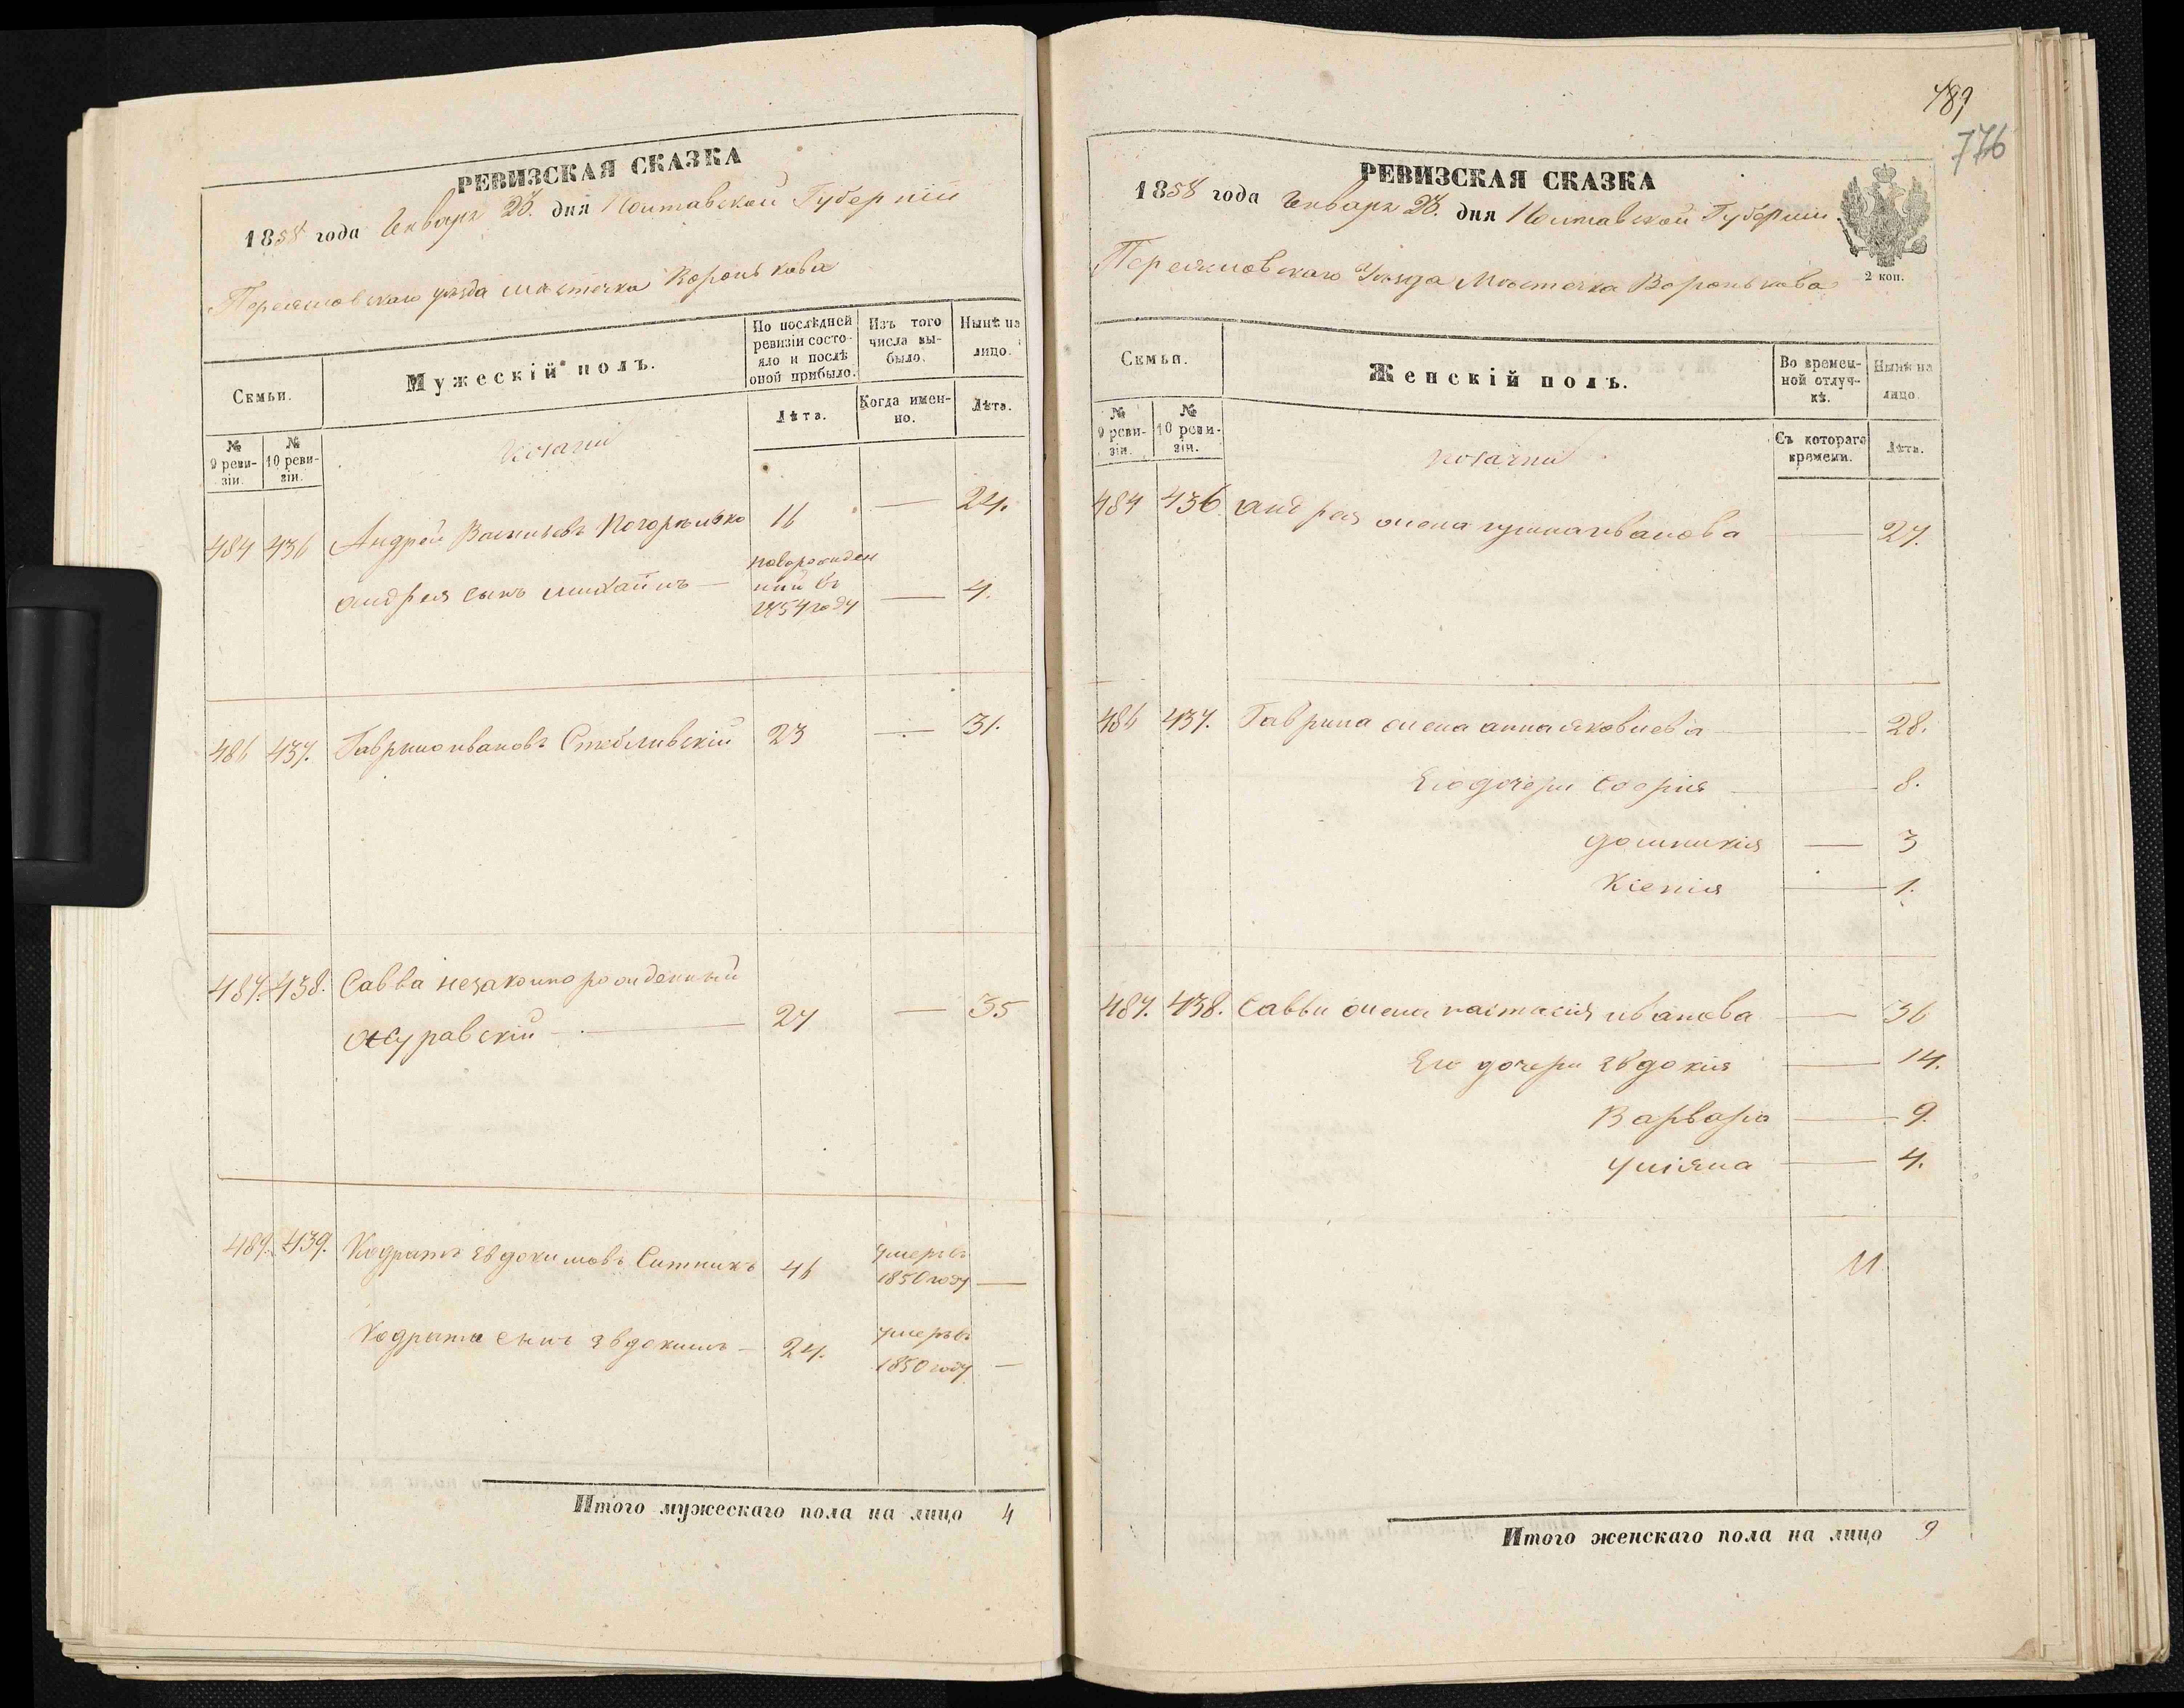 РЕВИЗСКАЯ СКАЗКА
1858 года Января 28. дня Полтавской Губерніи
Переяславскаго уѣзда мѣстечка Воронькова
Семьи.
Мужескій полъ.
По послѣдней ревизіи состояло и послѣ оной прибыло.
Изъ того числа выбыло.
Нынѣ на лицо.
№ 9 ревизіи.
№ 10 ревизіи.
Лѣта.
Когда именно.
Лѣта.
козаки
484 436 Андрей Васильевъ Погорѣлько 16 — 24.
андрея сынъ михаилъ — новорожденний въ 1854 году — 4.
486 437. Гаврило ивановъ Стебливскій 23 — 31.
487. 438. Савва незаконнорожденный
журавскій — 27 — 35
489. 439. Кодратъ Евдокимовъ Ситникъ 46 умеръ въ 1850 году —
Кодрата сынъ Евдокимъ — 24. умеръ въ 1850 году —
Итого мужескаго пола на лицо 4
489
776
РЕВИЗСКАЯ СКАЗКА
1858 года Января 28. дня Полтавской Губерніи
Переяславскаго Уѣзда Мѣстечка Воронькова
2 коп.
Семьи.
Женскій полъ.
Во временной отлучкѣ.
Нынѣ на лицо.
№ 9 ревизіи.
№ 10 ревизіи.
Съ котораго времени.
Лѣта.
козачки
484 436 андрея жена ивановa — 27.
486 437. Гаврила жена анна яковлева — 28.
Его дочери Софія — 8.
домникія — 3
Ксенія — 1.
487. 438. Саввы жена настасія иванова — 36
Его дочери Евдокія — 14.
Варвара — 9.
уліяна — 4.
Итого женскаго пола на лицо 9